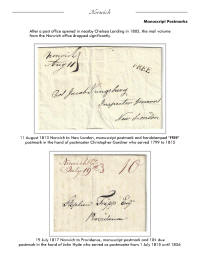 Norwich
Manuscript Postmarks
After a post office opened in nearby Chelsea Landing in 1885, the mail volume
from the Norwich office dropped significantly.
Norwich
Aug 11
FREE
Col Jacob Kingsbury
Inspector General
New London
11 August 1813 Norwich to New London, manuscript postmark and handstamped "FREE"
postmark in the hand of postmaster Christopher Gardner who served 1799 to 1815
Norwich Ct
July 19th 10
Stephen Tripp Esqr
Providence
19 July 1817 Norwich to Providence, manuscript postmark and 10¢ due
postmark in the hand of John Hyde who served as postmaster from 1 July 1815 until 1836